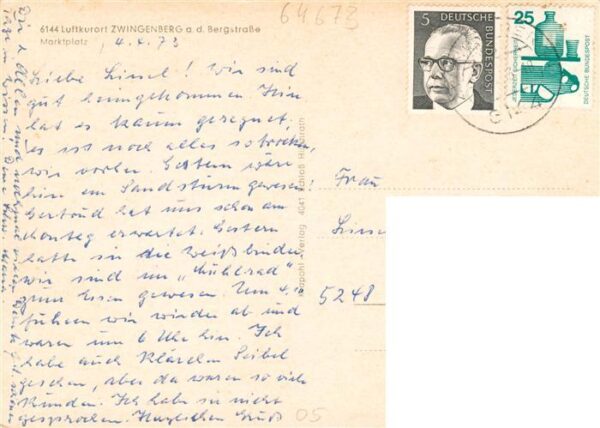 64673
6144 Luftkurort ZWINGENBERG a. d. Bergstraße
Marktplatz
4.4.73
Liebe Liesel! Wir sind
gut heimgekommen. Hier
hat es kaum geregnet,
es ist noch alles so trocken,
wie vorher. Gestern wäre
hier ein Sandsturm gewesen!
Gertrud hat uns schon am
erwartet. Gestern
hatte sie die Weißbinder
wir sind im „Mühlrad"
zum Essen gewesen. Um 4
fuhren wir wieder ab und
waren um 6 Uhr hier. Ich
habe auch Klärchen Seibel
gesehen, aber da waren so viele
Kunden. Ich habe sie nicht
gesprochen. Herzlichen Gruß
Dir & Allen und nochmal vielen Dank f. d. schönen
Tage in
Verlag 4041 Schloß
5
DEUTSCHE BUNDESPOST
25
DEUTSCHE BUNDESPOST
Frau
Liesel
5248
05